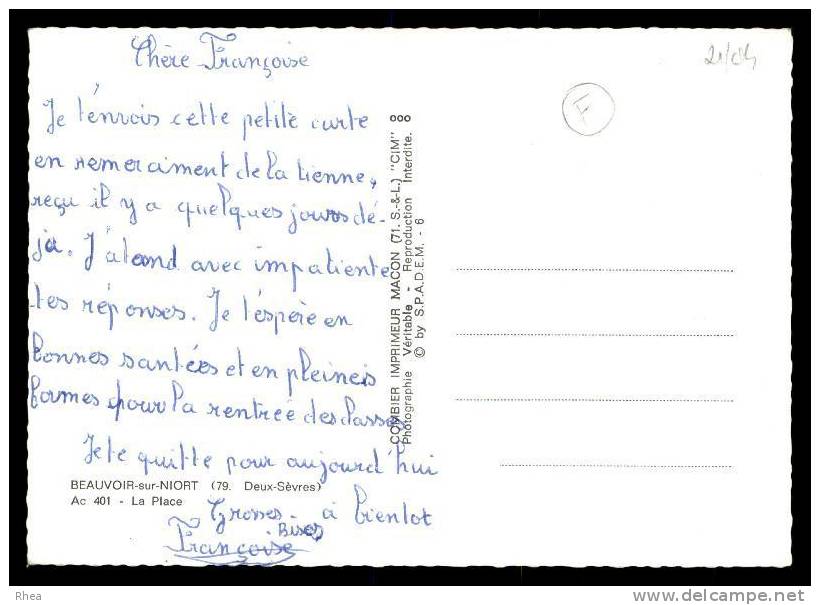 Chère Françoise
Je t'envois cette petite carte
en remerciment de la tienne,
reçu il y a quelques jours dé-
ja. J'atand avec impatiente
tes réponses. Je t'espère en
bonnes santées et en pleineis
formes pour la rentrée des classes
Je te quitte pour aujourd'hui
BEAUVOIR-sur-NIORT (79. Deux-Sèvres)
Ac 401 - La Place
Grosses Bises à bientot
Françoise
COMBIER IMPRIMEUR MACON (71. S.-&-L.) "CIM"
Photographie Véritable - Reproduction Interdite.
© by S.P.A.D.E.M. - 6
F
Rhea
www.delcampe.net